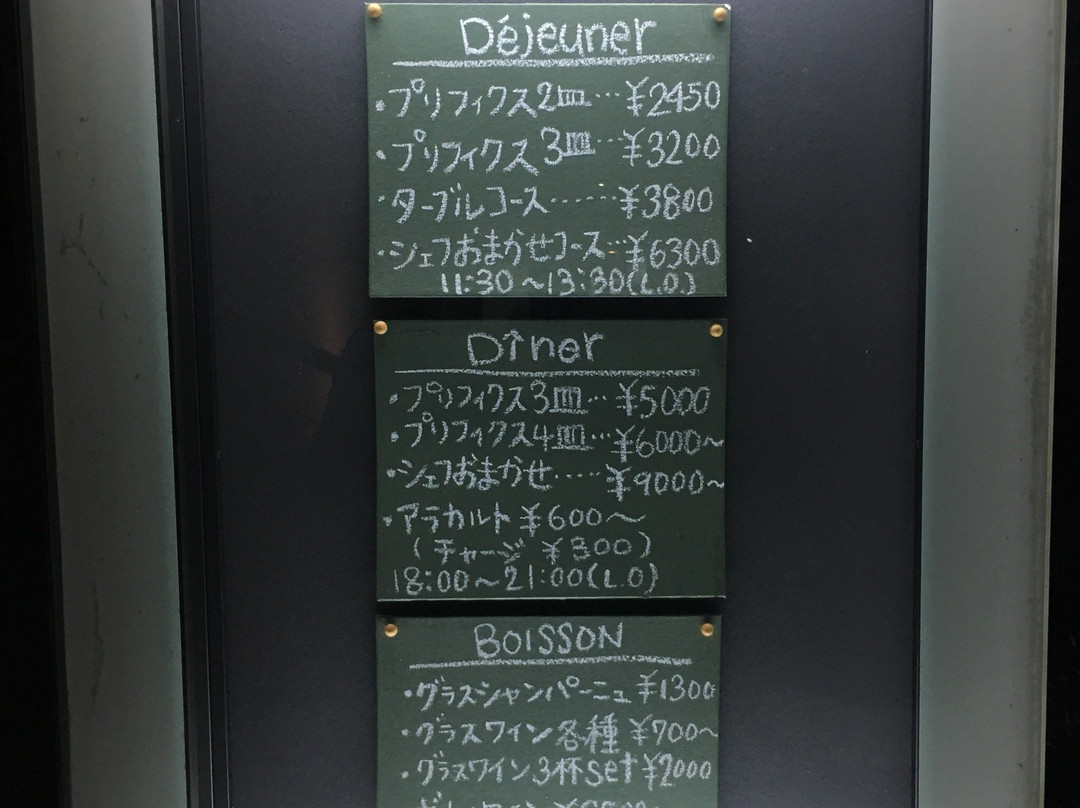 Déjeuner
・プリフィクス2皿…¥2450
・プリフィクス3皿…¥3200
・ターブルコース……¥3800
・シェフおまかせコース…¥6300
11:30〜13:30(L.O.)
Dîner
・プリフィクス3皿…¥5000
・プリフィクス4皿…¥6000〜
・シェフおまかせ……¥9000〜
・アラカルト ¥600〜
(チャージ ¥300)
18:00〜21:00(L.O)
BOISSON
・グラスシャンパーニュ ¥1300
・グラスワイン各種 ¥700〜
・グラスワイン3杯set ¥2000